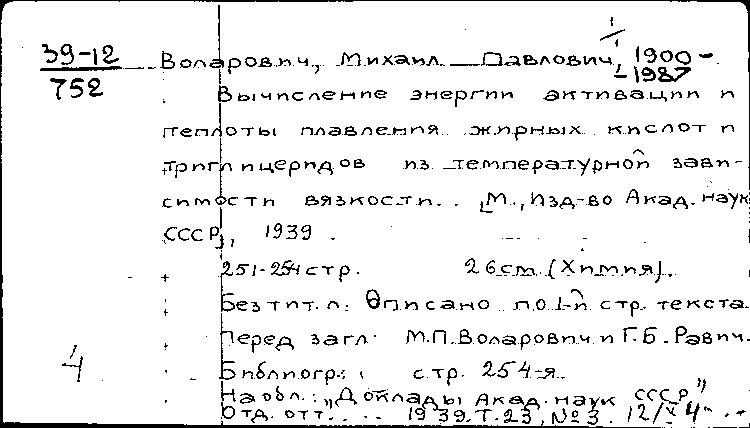 39-12
752
Воларович, Михаил Павлович, 1900-
-1987
Вычисление энергии активации и
теплоты плавления жирных кислот и
триглицеридов из температурной зави-
симости вязкости. [М., Изд-во Акад. наук
СССР], 1939.
251-254 стр. 26 см. (Химия).
Без тит. л. Описано по 1-й стр. текста.
Перед загл. М.П. Воларович и Г.Б. Равич.
Библиогр.: стр. 254-я.
На обл.: "Доклады Акад. наук СССР"
Отд. отт. 1939. Т. 23, №3. 12/V
4